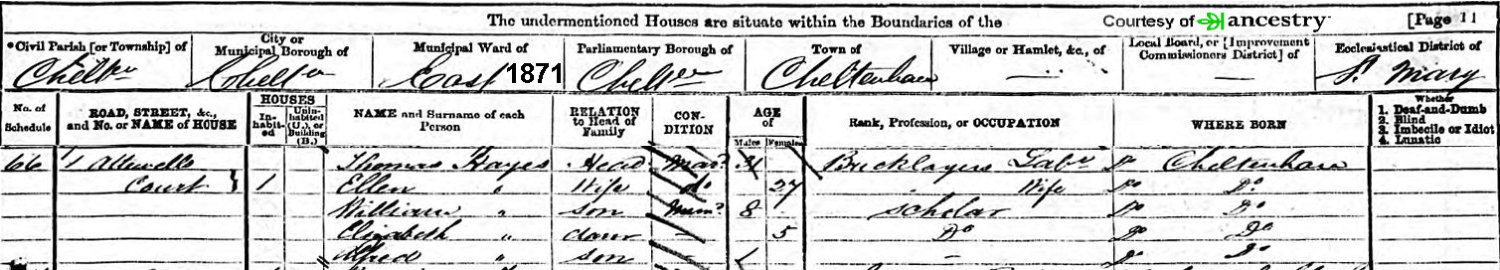 The undermentioned Houses are situate within the Boundaries of the Courtesy of ancestry [Page 11
*Civil Parish [or Township] of
City or Municipal Borough of
Municipal Ward of
Parliamentary Borough of
Town of
Village or Hamlet, &c., of
Local Board, or [Improvement Commissioners District] of
Ecclesiastical District of
East 1871 Cheltenham — — St. Mary
No. of Schedule
ROAD, STREET, &c., and No. or NAME of HOUSE
HOUSES
In-habit-ed
Unin-habited (U.), or Building (B.)
NAME and Surname of each Person
RELATION to Head of Family
CON-DITION
AGE of
Males
Females
Rank, Profession, or OCCUPATION
WHERE BORN
Whether
1. Deaf-and-Dumb
2. Blind
3. Imbecile or Idiot
4. Lunatic
66 Thomas Hayes Head Mar? 31 Bricklayers Labr Do Cheltenham
Court } 1 Ellen " Wife do 27 Wife Do Do
William " son 8 Scholar Do Do
Elizabeth " daur 5 Do Do Do
Alfred " son Do Do